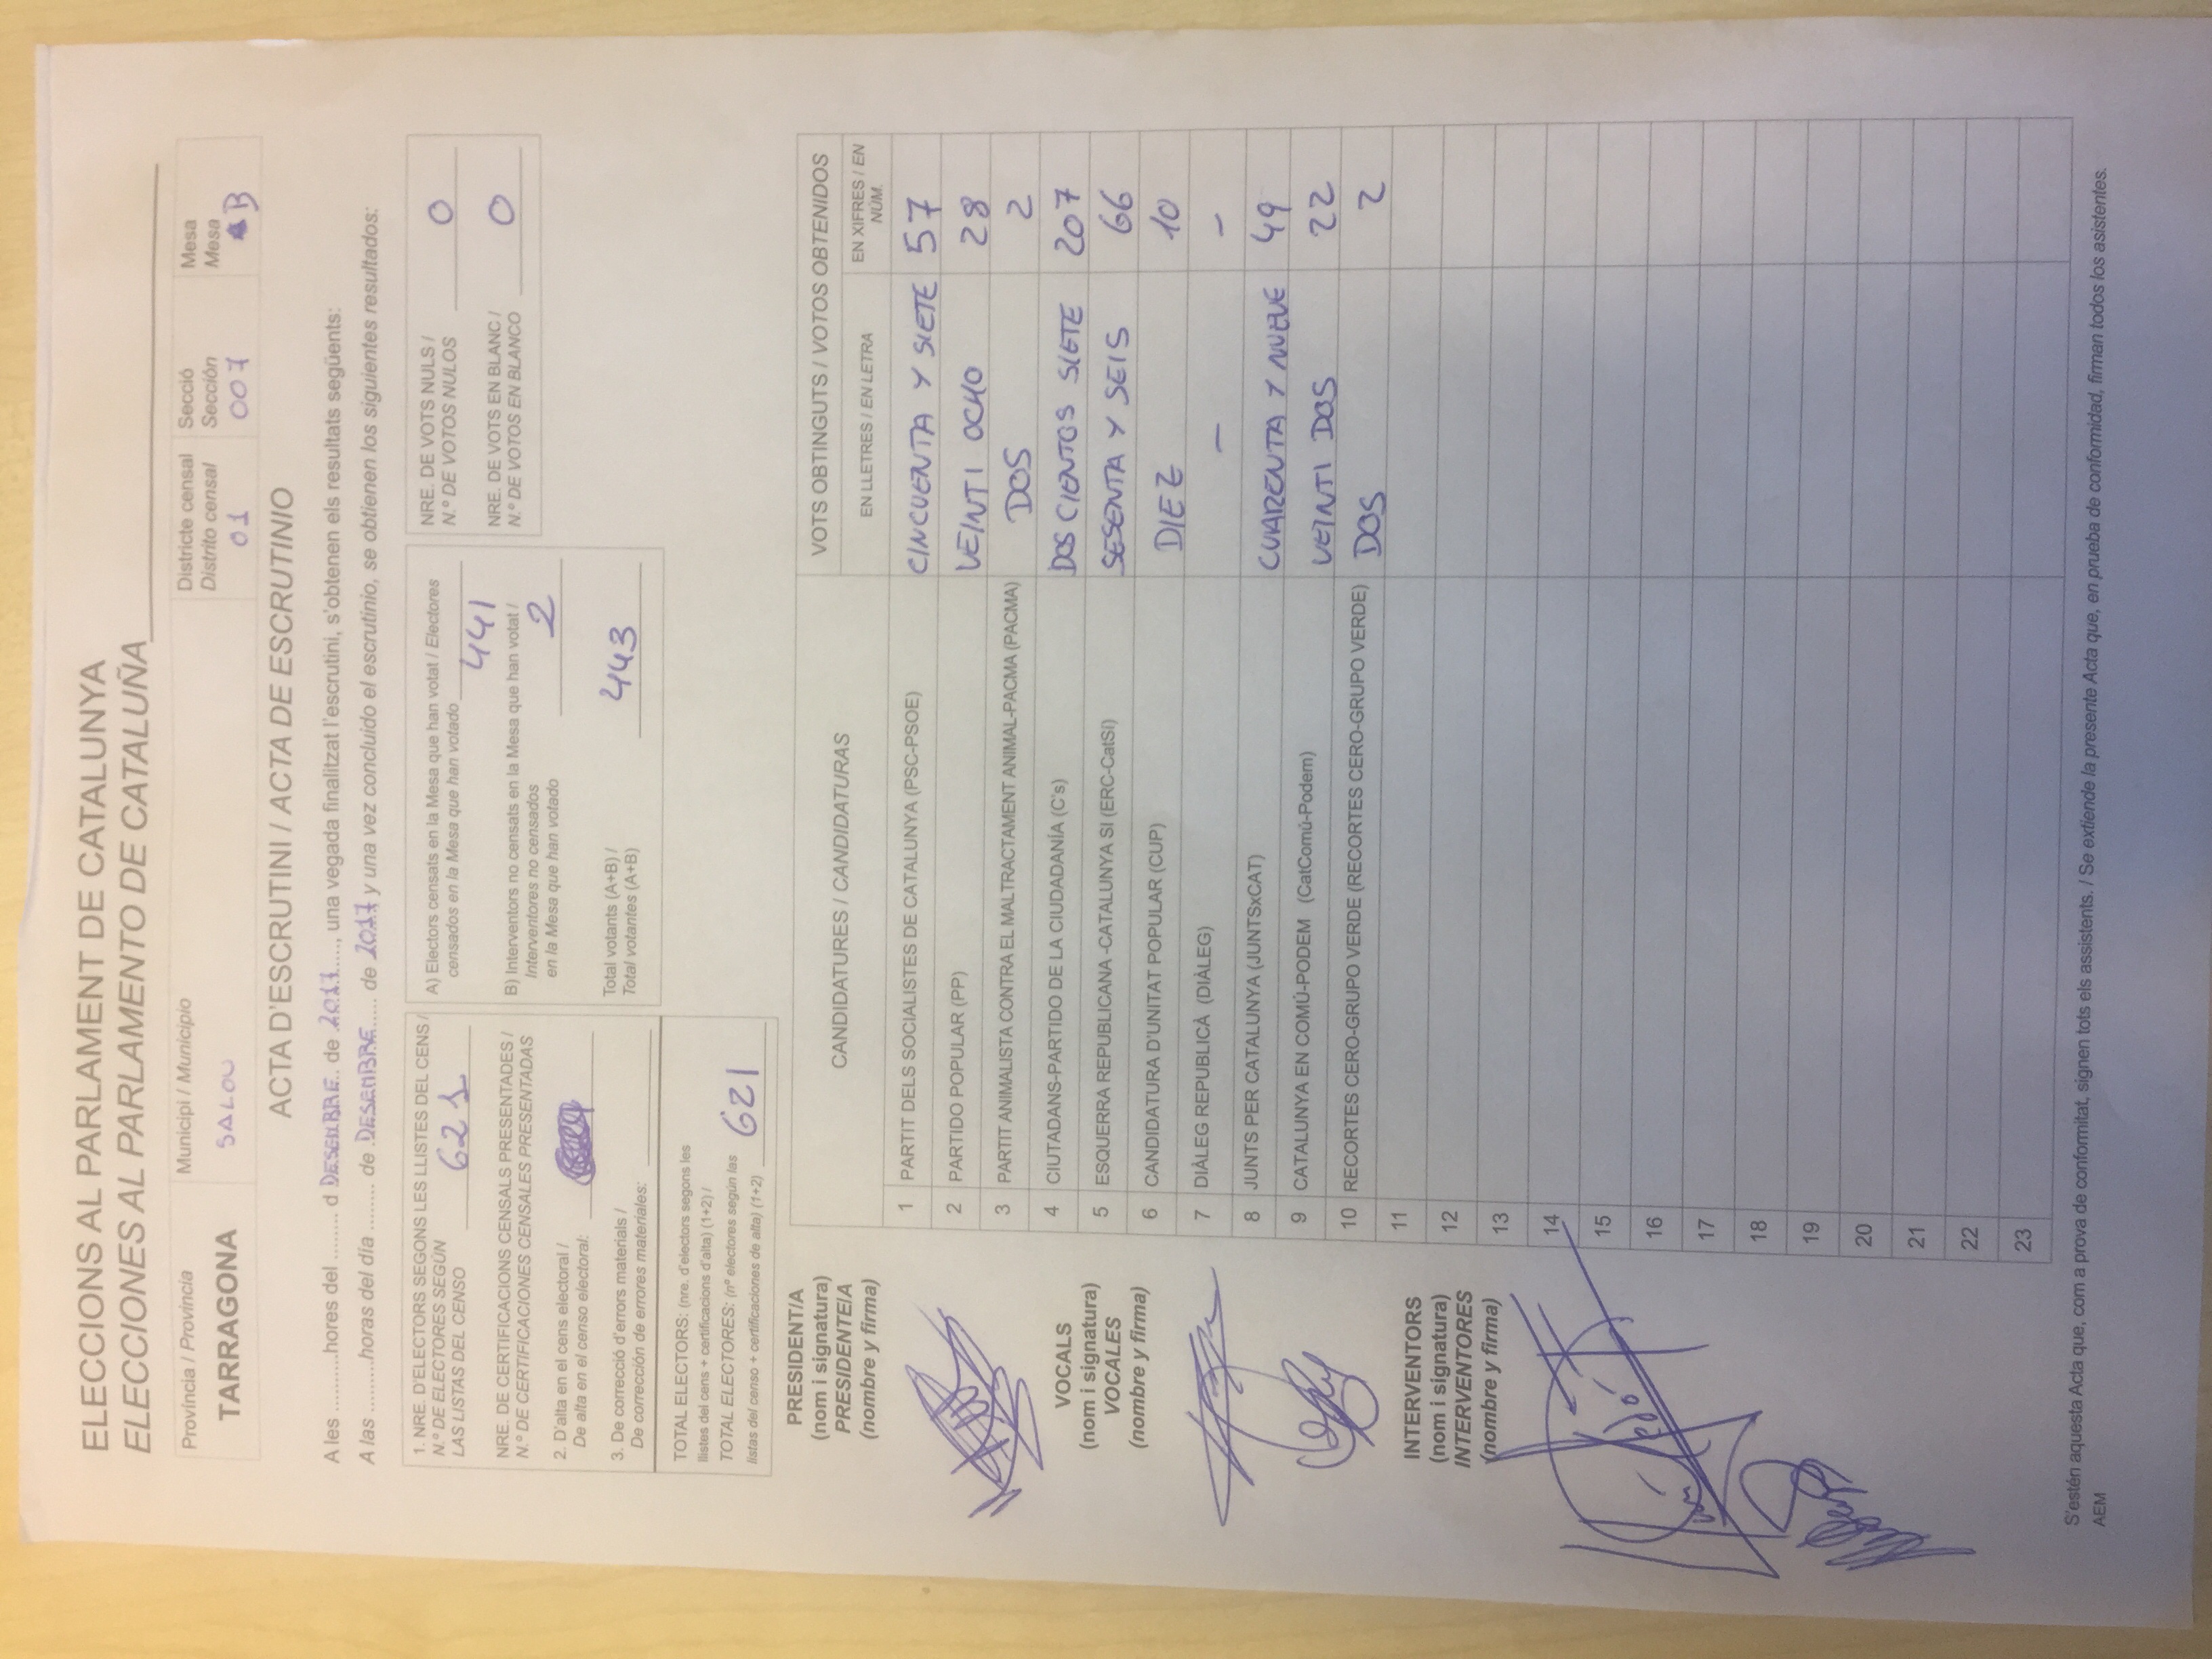 ELECCIONS AL PARLAMENT DE CATALUNYA
ELECCIONES AL PARLAMENTO DE CATALUÑA
Província / Provincia
TARRAGONA
Municipi / Municipio
SALOU
Districte censal
Distrito censal
01
Secció
Sección
007
Mesa
Mesa
B
ACTA D'ESCRUTINI / ACTA DE ESCRUTINIO
A les ..........hores del ........ d DESEMBRE de 2017....., una vegada finalitzat l'escrutini, s'obtenen els resultats següents:
A las .........horas del día ........ de DESEMBRE..... de 2017 y una vez concluido el escrutinio, se obtienen los siguientes resultados:
1. NRE. D'ELECTORS SEGONS LES LLISTES DEL CENS /
N.º DE ELECTORES SEGÚN
LAS LISTAS DEL CENSO 621
NRE. DE CERTIFICACIONS CENSALS PRESENTADES /
N.º DE CERTIFICACIONES CENSALES PRESENTADAS
2. D'alta en el cens electoral /
De alta en el censo electoral:
3. De correcció d'errors materials /
De corrección de errores materiales:
TOTAL ELECTORS: (nre. d'electors segons les
llistes del cens + certificacions d'alta) (1+2) /
TOTAL ELECTORES: (nº electores según las
listas del censo + certificaciones de alta) (1+2) 621
A) Electors censats en la Mesa que han votat / Electores
censados en la Mesa que han votado
441
B) Interventors no censats en la Mesa que han votat /
Interventores no censados
en la Mesa que han votado 2
Total votants (A+B) /
Total votantes (A+B) 443
NRE. DE VOTS NULS /
N.º DE VOTOS NULOS 0
NRE. DE VOTS EN BLANC /
N.º DE VOTOS EN BLANCO 0
PRESIDENT/A
(nom i signatura)
PRESIDENTE/A
(nombre y firma)
VOCALS
(nom i signatura)
VOCALES
(nombre y firma)
INTERVENTORS
(nom i signatura)
INTERVENTORES
(nombre y firma)
CANDIDATURES / CANDIDATURAS
VOTS OBTINGUTS / VOTOS OBTENIDOS
EN LLETRES / EN LETRA
EN XIFRES / EN
NÚM.
1 PARTIT DELS SOCIALISTES DE CATALUNYA (PSC-PSOE) CINCUENTA Y SIETE 57
2 PARTIDO POPULAR (PP) VEINTI OCHO 28
3 PARTIT ANIMALISTA CONTRA EL MALTRACTAMENT ANIMAL-PACMA (PACMA) DOS 2
4 CIUTADANS-PARTIDO DE LA CIUDADANÍA (C's) DOS CIENTOS SIETE 207
5 ESQUERRA REPUBLICANA -CATALUNYA SI (ERC-CatSí) SESENTA Y SEIS 66
6 CANDIDATURA D'UNITAT POPULAR (CUP) DIEZ 10
7 DIÀLEG REPUBLICÀ (DIÀLEG) - -
8 JUNTS PER CATALUNYA (JUNTSxCAT) CUARENTA Y NUEVE 49
9 CATALUNYA EN COMÚ-PODEM (CatComú-Podem) VEINTI DOS 22
10 RECORTES CERO-GRUPO VERDE (RECORTES CERO-GRUPO VERDE) DOS 2
11
12
13
14
15
16
17
18
19
20
21
22
23
S'estén aquesta Acta que, com a prova de conformitat, signen tots els assistents. / Se extiende la presente Acta que, en prueba de conformidad, firman todos los asistentes.
AEM